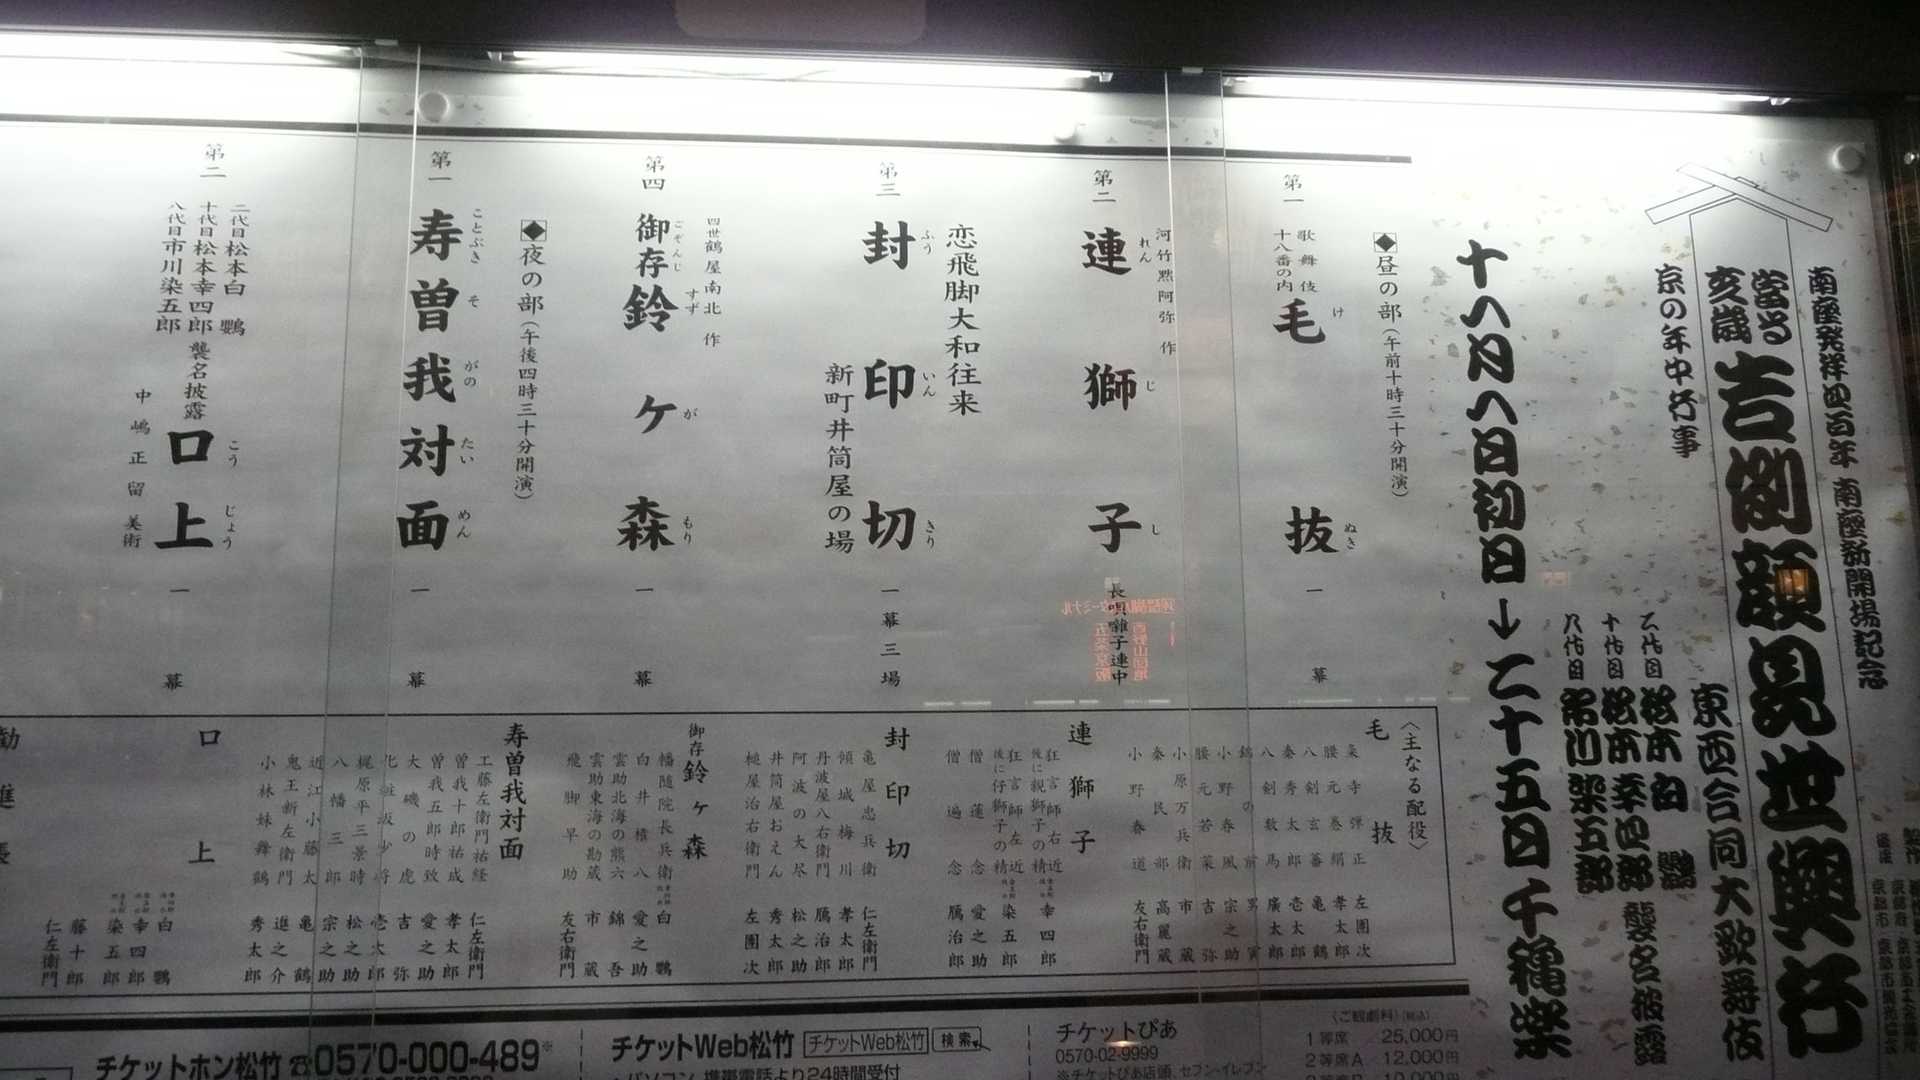 南座発祥四百年 南座新開場記念
當る亥歳 吉例顔見世興行
東西合同大歌舞伎
京の年中行事
二代目 松本白鸚
十代目 松本幸四郎
八代目 市川染五郎
襲名披露
十一月一日初日→二十五日千穐楽
◆昼の部(午前十時三十分開演)
第一 歌舞伎十八番の内 毛抜 一幕
けぬき
河竹黙阿弥 作
第二 連獅子 長唄囃子連中
れんじし
恋飛脚大和往来
第三 封印切 一幕三場
ふういんきり
新町井筒屋の場
四世鶴屋南北 作
第四 御存鈴ヶ森 一幕
ごぞんじすずがもり
◆夜の部(午後四時三十分開演)
第一 寿曽我対面 一幕
ことぶきそがのたいめん
第二 二代目松本白鸚
十代目松本幸四郎
八代目市川染五郎
襲名披露 口上 一幕
こうじょう
中嶋正留 美術
〈主なる配役〉
毛抜
粂寺弾正 左團次
腰元巻絹 孝太郎
八剣玄蕃 亀鶴
秦秀太郎 壱太郎
八剣数馬 廣太郎
錦の前 男寅
小野春風 宗之助
腰元若菜 吉弥
小原万兵衛 市蔵
秦民部 高麗蔵
小野春道 友右衛門
連獅子
狂言師右近後に親獅子の精 幸四郎
狂言師左近後に仔獅子の精 染五郎
僧蓮念 愛之助
僧遍念 鴈治郎
封印切
亀屋忠兵衛 仁左衛門
傾城梅川 孝太郎
丹波屋八右衛門 鴈治郎
阿波の大尽 松之助
井筒屋おえん 秀太郎
槌屋治右衛門 左團次
御存鈴ヶ森
幡随院長兵衛 白鸚
白井権八 愛之助
雲助北海の熊六 錦吾
雲助東海の勘蔵 市蔵
飛脚早助 友右衛門
寿曽我対面
工藤左衛門祐経 仁左衛門
曽我十郎祐成 孝太郎
曽我五郎時致 愛之助
大磯の虎 吉弥
化粧坂少将 壱太郎
梶原平三景時 松之助
八幡三郎 宗之助
近江小藤太 亀鶴
鬼王新左衛門 進之介
小林妹舞鶴 秀太郎
口上
白鸚
幸四郎
染五郎
藤十郎
仁左衛門
チケットホン松竹☎0570-000-489※
チケットWeb松竹 チケットWeb松竹 検索
パソコン、携帯電話より24時間受付
チケットぴあ
0570-02-9999
※チケットぴあ店頭、セブン-イレブン
〈ご観劇料〉(税込)
1等席 25,000円
2等席A 12,000円